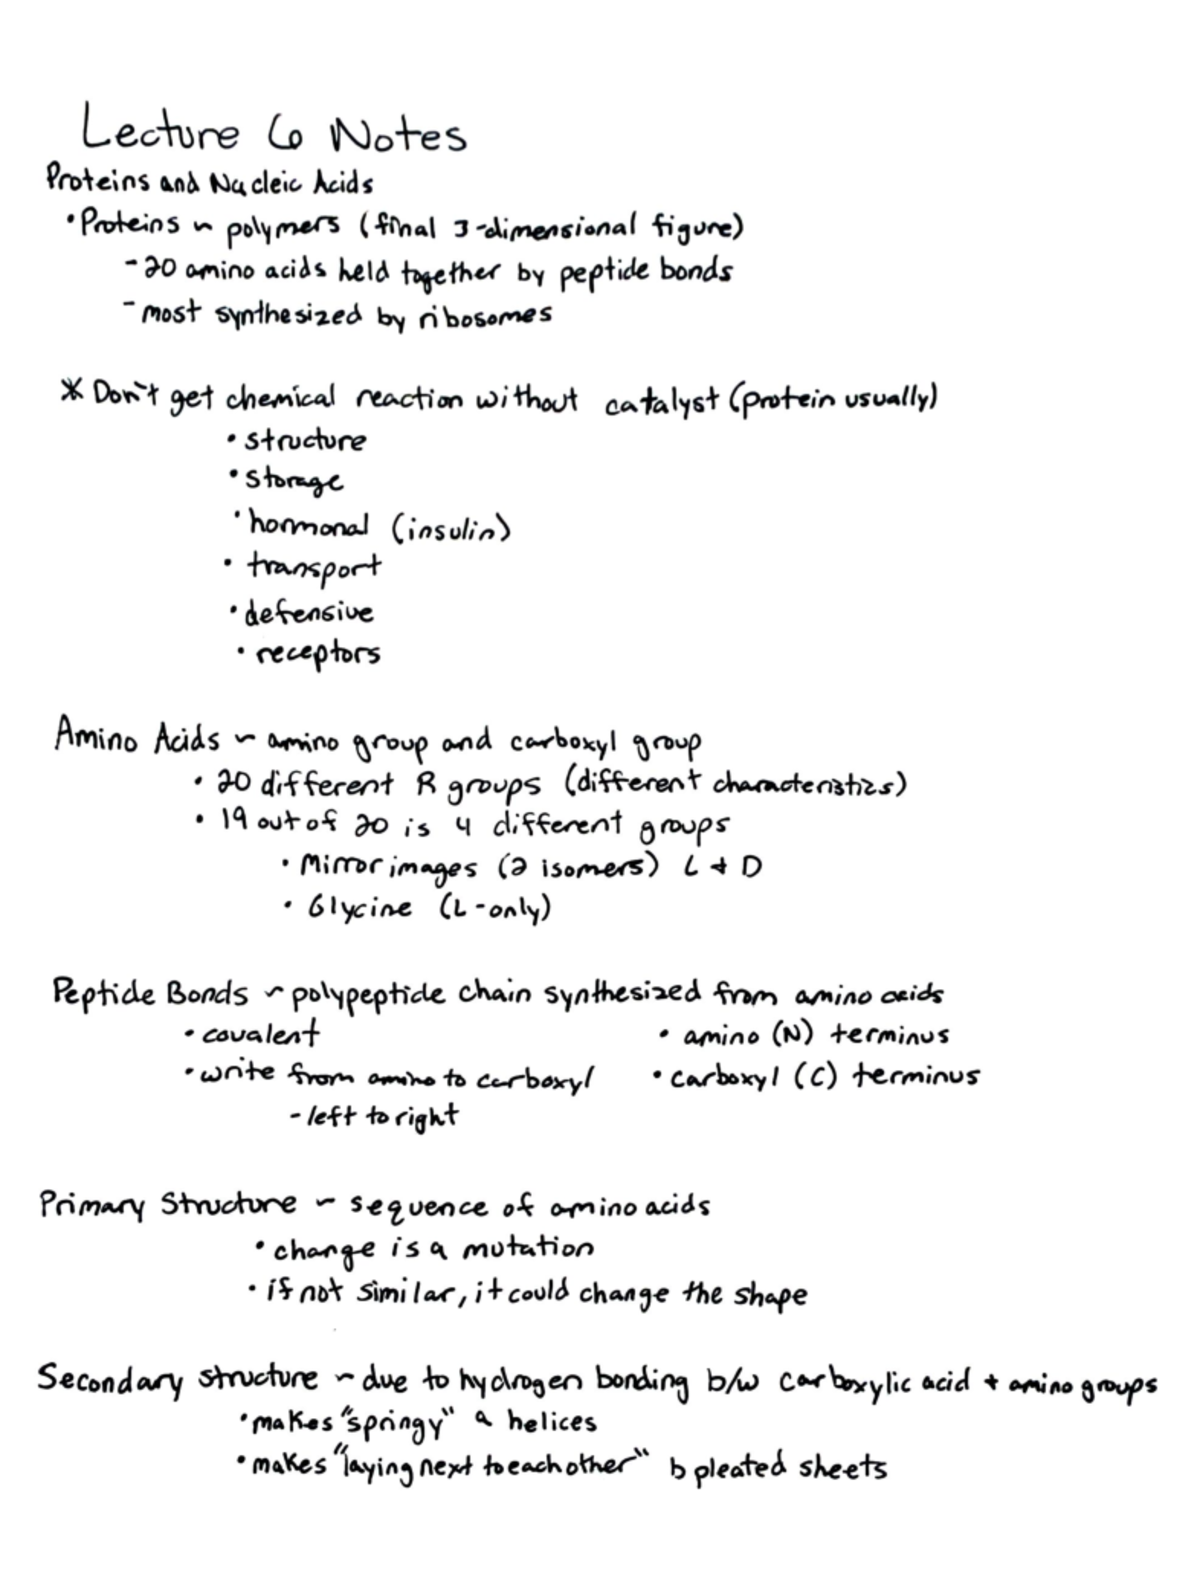 Lecture 6 Notes
Proteins and Nucleic Acids
• Proteins ~ polymers (final 3-dimensional figure)
- 20 amino acids held together by peptide bonds
- most synthesized by ribosomes
* Don't get chemical reaction without catalyst (protein usually)
• structure
• storage
• hormonal (insulin)
• transport
• defensive
• receptors
Amino Acids ~ amino group and carboxyl group
• 20 different R groups (different characteristics)
• 19 out of 20 is 4 different groups
• Mirror images (2 isomers) L + D
• Glycine (L-only)
Peptide Bonds ~ polypeptide chain synthesized from amino acids
• covalent • amino (N) terminus
• write from amino to carboxyl • carboxyl (C) terminus
- left to right
Primary Structure ~ sequence of amino acids
• change is a mutation
• if not similar, it could change the shape
Secondary structure ~ due to hydrogen bonding b/w carboxylic acid + amino groups
• makes "springy" a helices
• makes "laying next to each other" b pleated sheets